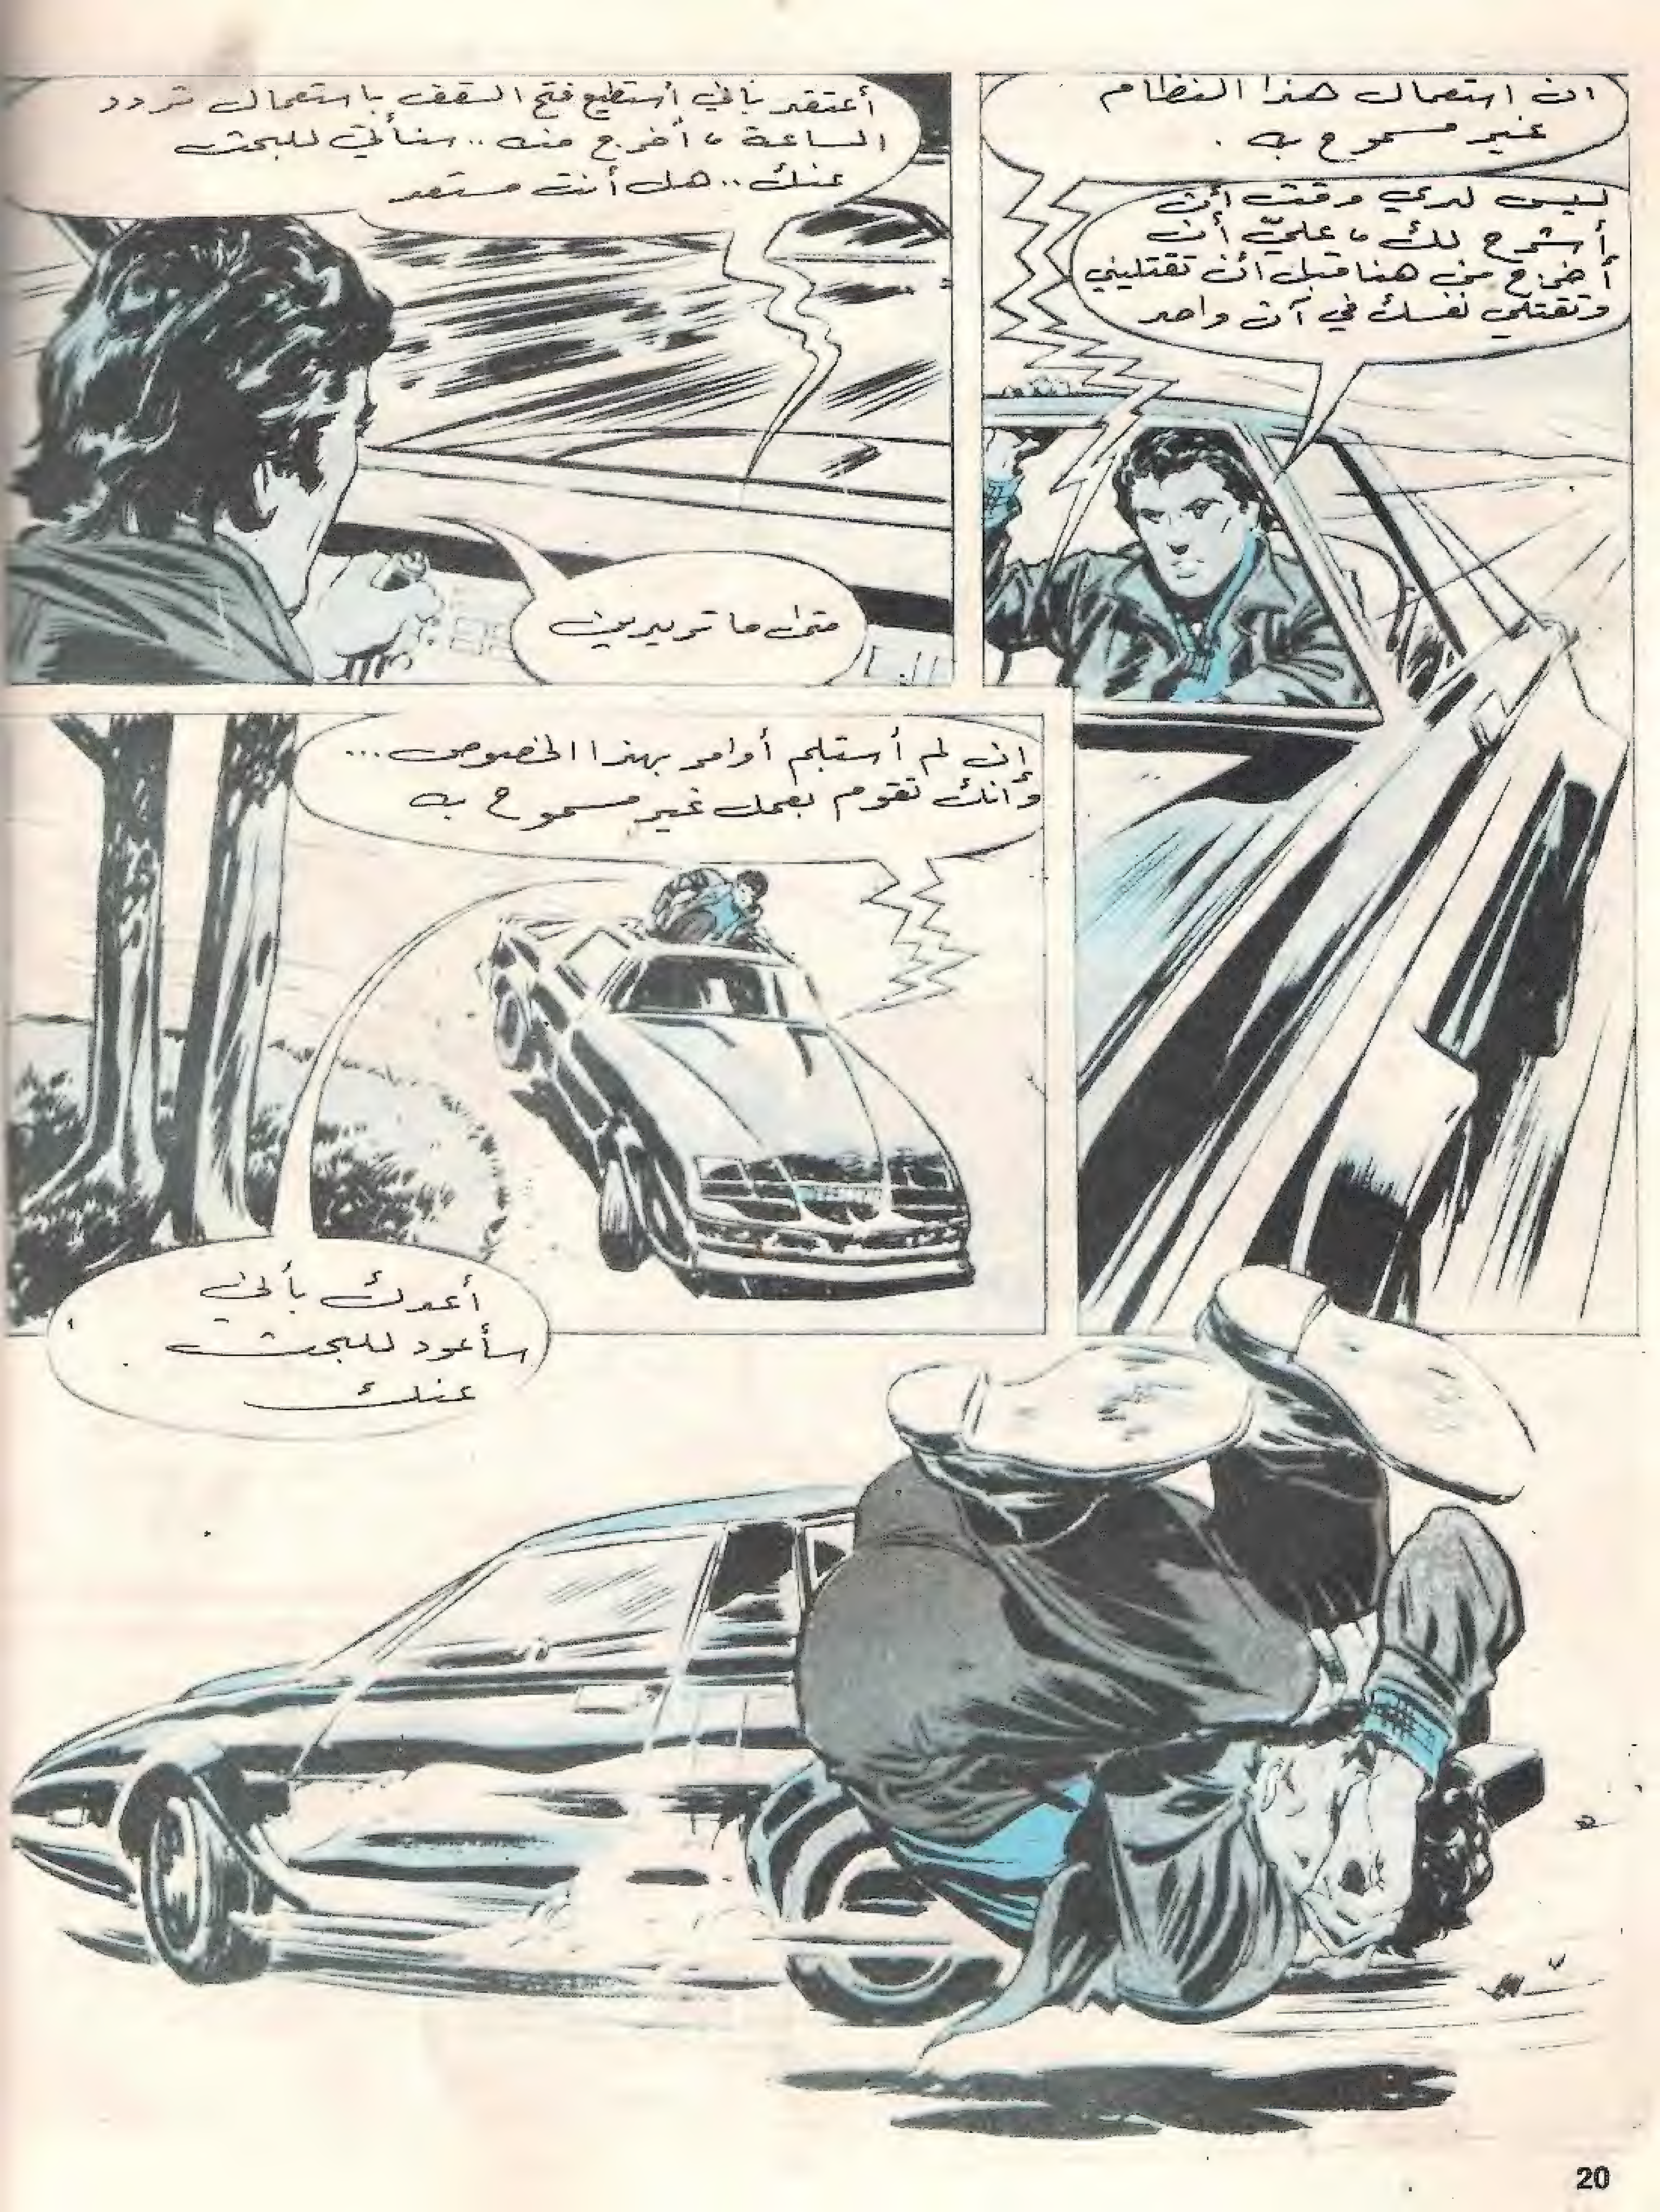 ان استعمال هذا النظام
غير مسموح به .
ليس لدي وقت أن
أشرح لك ، عليّ أن
أخرج من هنا قبل أن تقتليني
وتقتلي نفسك في آن واحد
أعتقد بأني أستطيع فتح السقف باستعمال تردد
الساعة ، أخرج منه .. سنأتي للبحث
عنك .. هل أنت مستعد
متى ما تريدين
إن لم أستلم أوامر بهذا الخصوص ...
وإنك تقوم بعمل غير مسموح به
أعدك بأني
سأعود للبحث
عنك
20